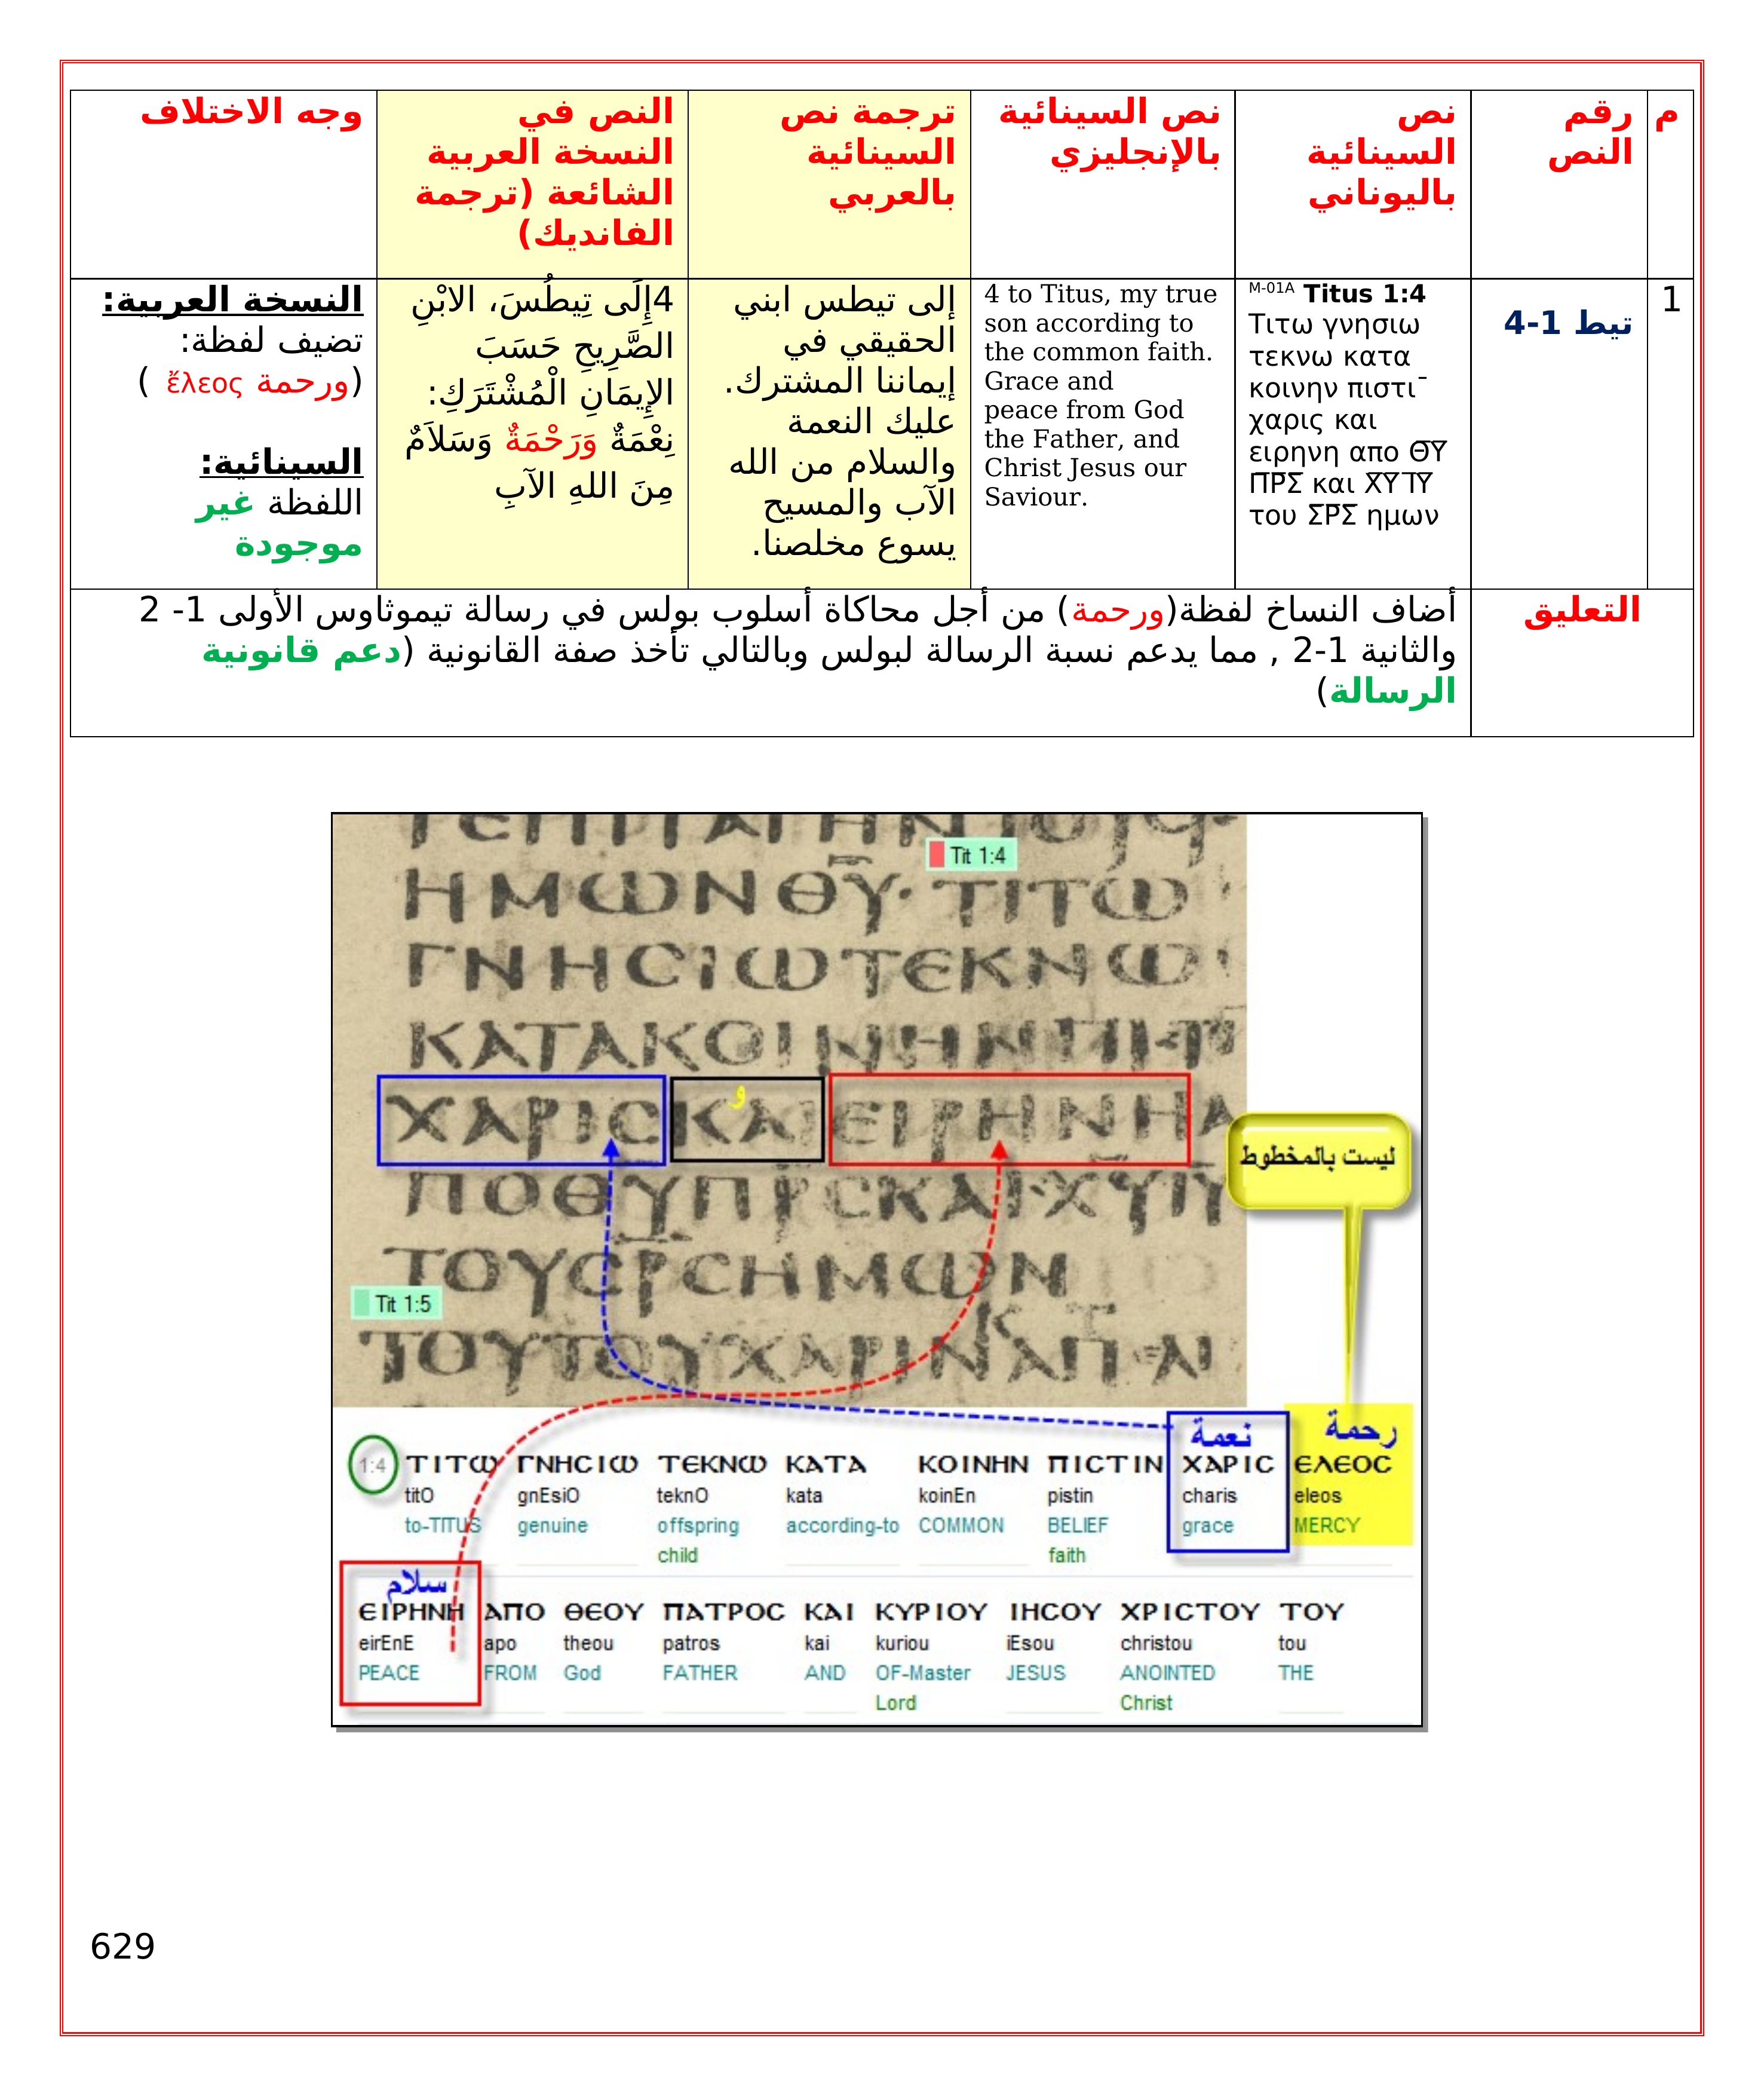 م
رقم
النص
نص
السينائية
باليوناني
نص السينائية
بالإنجليزي
ترجمة نص
السينائية
بالعربي
النص في
النسخة العربية
الشائعة (ترجمة
الفانديك)
وجه الاختلاف
1
تيط 1-4
M-01A Titus 1:4
Τιτω γνησιω
τεκνω κατα
κοινην πιστι¯
χαρις και
ειρηνη απο Θ̅Υ̅
Π̅Ρ̅Σ̅ και Χ̅Υ̅ Ι̅Υ̅
του Σ̅Ρ̅Σ̅ ημων
4 to Titus, my true
son according to
the common faith.
Grace and
peace from God
the Father, and
Christ Jesus our
Saviour.
إلى تيطس ابني
الحقيقي في
إيماننا المشترك.
عليك النعمة
والسلام من الله
الآب والمسيح
يسوع مخلصنا.
4إِلَى تِيطُسَ، الابْنِ
الصَّرِيحِ حَسَبَ
الإِيمَانِ الْمُشْتَرَكِ:
نِعْمَةٌ وَرَحْمَةٌ وَسَلاَمٌ
مِنَ اللهِ الآبِ
النسخة العربية:
تضيف لفظة:
(ورحمة ἔλεος )
السينائية:
اللفظة غير
موجودة
التعليق
أضاف النساخ لفظة(ورحمة) من أجل محاكاة أسلوب بولس في رسالة تيموثاوس الأولى 1- 2
والثانية 1-2 , مما يدعم نسبة الرسالة لبولس وبالتالي تأخذ صفة القانونية (دعم قانونية
الرسالة)
Tit 1:4
ΗΜΩΝΘΥ· ΤΙΤΩ
ΓΝΗCΙΩΤΕΚΝΩ
ΚΑΤΑΚΟΙΝΗΝΠΙ
و
ΧΑΡΙCΚΑΙΕΙΡΗΝΗΑ
ليست بالمخطوط
ΠΟΘΥΠΡCΚΑΙΧΥΙΥ
ΤΟΥCΡCΗΜΩΝ
Tit 1:5
ΤΟΥΤΟΥΧΑΡΙΝ
نعمة رحمة
1:4 ΤΙΤΩ ΓΝΗCΙΩ ΤΕΚΝΩ ΚΑΤΑ ΚΟΙΝΗΝ ΠΙCΤΙΝ ΧΑΡΙC ΕΛΕΟC
titO gnEsiO teknO kata koinEn pistin charis eleos
to-TITUS genuine offspring according-to COMMON BELIEF grace MERCY
child faith
سلام
ΕΙΡΗΝΗ ΑΠΟ ΘΕΟΥ ΠΑΤΡΟC ΚΑΙ ΚΥΡΙΟΥ ΙΗCΟΥ ΧΡΙCΤΟΥ ΤΟΥ
eirEnE apo theou patros kai kuriou iEsou christou tou
PEACE FROM God FATHER AND OF-Master JESUS ANOINTED THE
Lord Christ
629